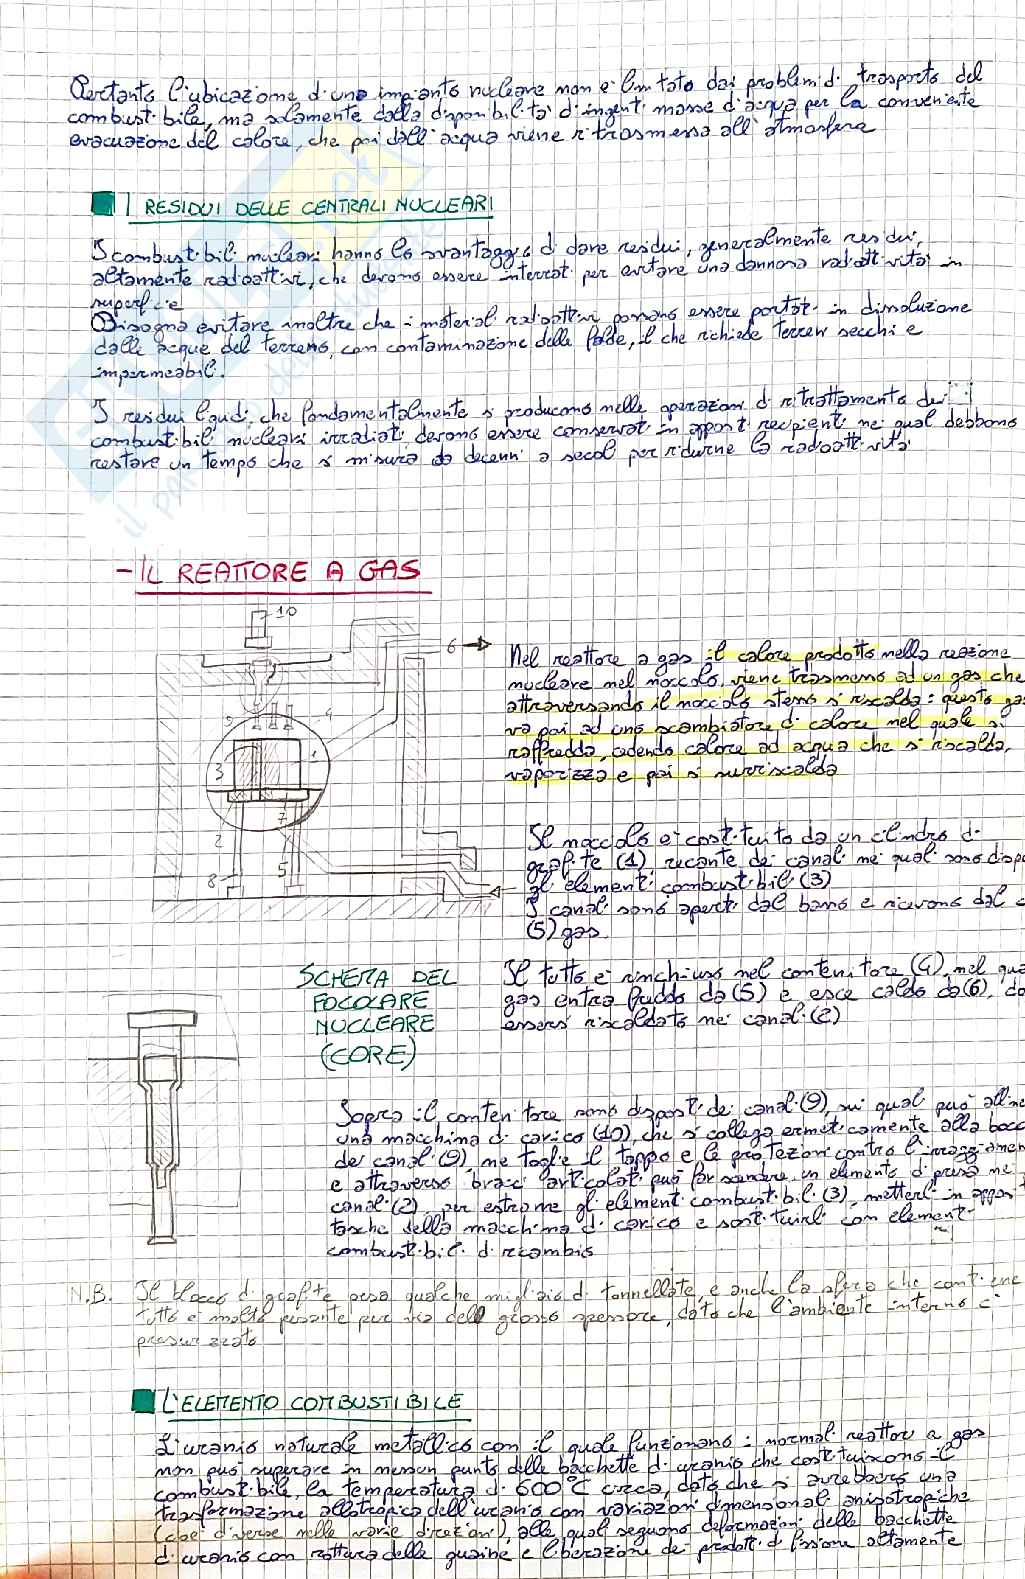 Pertanto l'ubicazione di una impianto nucleare non è limitato dai problemi di trasporto del
combustibile, ma solamente dalla disponibilità d'ingenti masse d'acqua per la conveniente
evacuazione del calore, che poi dall'acqua viene ritrasmessa all'atmosfera
I RESIDUI DELLE CENTRALI NUCLEARI
I combustibili nucleari hanno lo svantaggio di dare residui, generalmente residui,
altamente radioattivi, che devono essere interrati per evitare una dannosa radioattività in
superficie
Bisogna evitare inoltre che i materiali radioattivi possano essere portati in dissoluzione
dalle acque del terreno, con contaminazione delle falde, il che richiede terreni secchi e
impermeabili.
I residui liquidi che fondamentalmente si producono nelle operazioni di ritrattamento dei
combustibili nucleari irradiati devono essere conservati in appositi recipienti nei quali debbono
restare un tempo che si misura da decenni a secoli per ridurne la radioattività
- IL REATTORE A GAS
10
6
9
4
3
1
2
7
8
5
Nel reattore a gas il calore prodotto nella reazione
nucleare nel nocciolo, viene trasmesso ad un gas che
attraversando il nocciolo stesso si riscalda: questo gas
va poi ad uno scambiatore di calore nel quale si
raffredda, cedendo calore ad acqua che si riscalda,
vaporizza e poi si surriscalda
Il nocciolo è costituito da un cilindro di
grafite (1) recante dei canali nei quali sono dispo
gli elementi combustibili (3)
I canali sono aperti dal basso e ricevono dal
(5) gas
SCHEMA DEL
FOCOLARE
NUCLEARE
(CORE)
Il tutto è rinchiuso nel contenitore (4), nel qua
gas entra freddo da (5) e esce caldo da (6), do
essersi riscaldato nei canali (2)
Sopra il contenitore sono disposti dei canali (9), sui quali può alline
una macchina di carico (10), che si collega ermeticamente alla bocc
dei canali (9), ne toglie il tappo e le protezioni contro l'irraggiamen
e attraverso bracci articolati può far scendere un elemento di presa nei
canali (2) per estrarne gli elementi combustibili (3), metterli in apposi
tasche della macchina di carico e sostituirli con elementi
combustibili di ricambio
N.B. Il blocco di grafite pesa qualche migliaio di tonnellate, e anche la sfera che contiene
tutto è molto pesante per via del grosso spessore, dato che l'ambiente interno è
pressurizzato
L'ELEMENTO COMBUSTIBILE
L'uranio naturale metallico con il quale funzionano i normali reattori a gas
non può superare in nessun punto delle bacchette di uranio che costituiscono il
combustibile, la temperatura di 600°C circa, dato che si avrebbero una
trasformazione allotropica dell'uranio con variazioni dimensionali anisotropiche
(cioè diverse nelle varie direzioni), alle quali seguono deformazioni delle bacchette
di uranio con rottura delle guaine e liberazione dei prodotti di fissione altamente